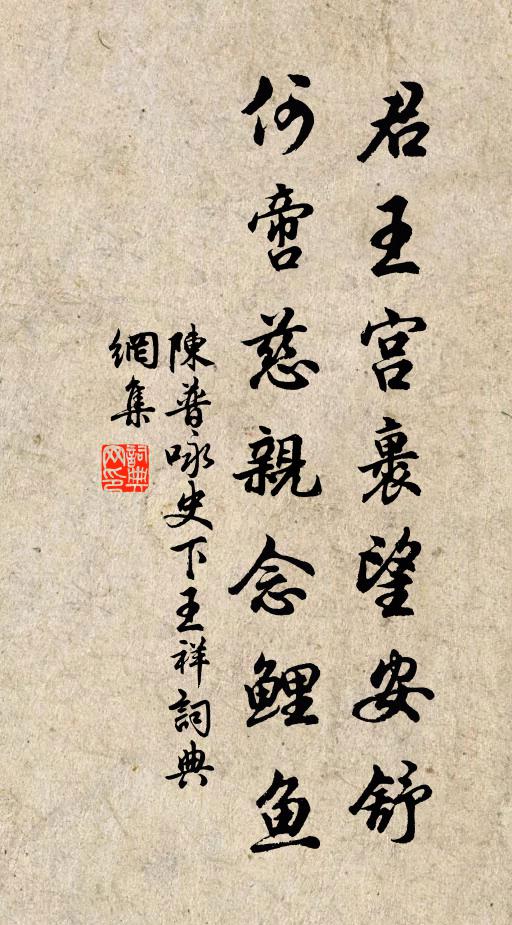 君王宫裏望安舒
何啻慈親念鯉魚
陳普咏史下王祥詞典
網集
詞典
网印